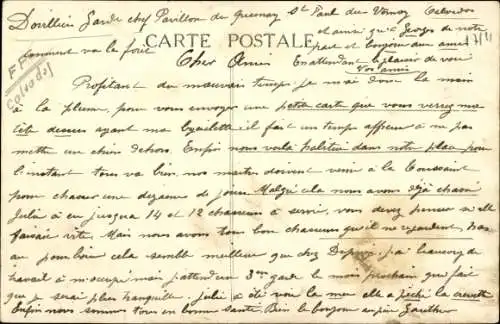 Douillen Garde chez Pavillon du Quesnay St Paul du Vernay Calvados
et ainsi qu'à Georges de notre
part et bonjour aux amis
comment va le four
CARTE POSTALE
17/11
Cher Amis En attendant le plaisir de vous
Vos amis
Calvados
Profitant du mauvais temps, je mai donc la main
à la plume, pour vous envoyer une petite carte que vous verrez ma
tête dessus ayant ma byciclette il fait un temps affreux à ne pas
mettre un chien dehors. Enfin nous voilà habituer dans notre place pour
l'instant tous va bien, nos maîtres doivent venir à la Toussaint
pour chasser une dizaine de jours Malgré cela nous avons déjà chassé
Julie à eu jusqua 14 et 12 chasseurs à servir, vous devez penser si elle
faisait vite. Mais nous avons tous bon chasseurs qu'il ne regardent pas
au pourboire cela semble meilleur que chez Dupuy j'ai beaucoup de
travail à m'occupé mais j'attend un 3me garde le mois prochain qui fait
que je serai plus tranquille julie a été voir la mer elle a pêché la crevette
Enfin nous sommes tous en bonne santé. Bien le bonjour au père Gauthier